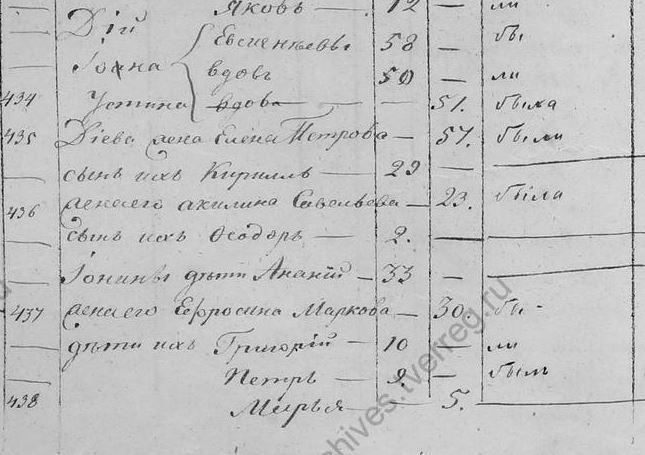 Яковъ — 12 — ли
Дій Евсигнѣевы 58 — бы
Іона вдовъ 50 — ли
434 Устина вдова — — 51. была
435 Діева жена Елена Петрова — 57. были
сынъ ихъ Кириллъ — 29 —
436 жена его акилина Савельева — 23. была
сынъ ихъ Ѳеодоръ — 2. —
Іонины дѣти Ананій — 33 —
437 жена его Ефросина Маркова — 30. бы-
дѣти ихъ Григорій — 10 — ли
Петръ — 9. — былъ
438 Марья — 5.
archives.tverreg.ru